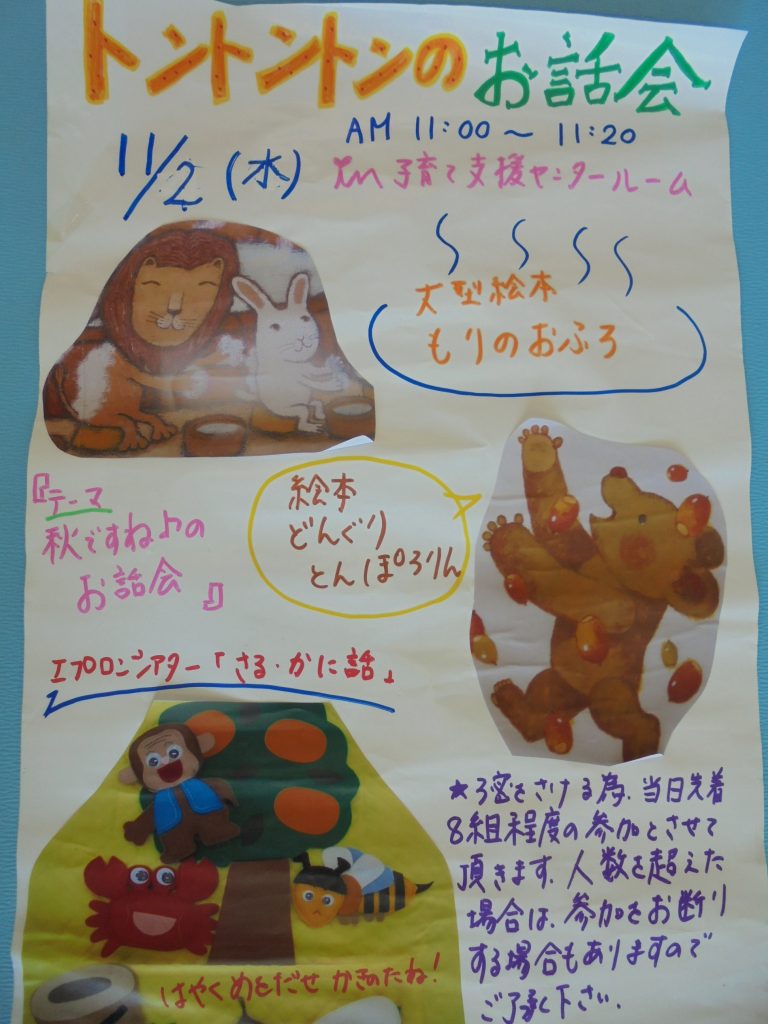 トントントンのお話会
11/2(水)
AM 11:00〜11:20
in 子育て支援センタールーム
大型絵本
もりのおふろ
『テーマ
秋ですね♪の
お話会』
絵本
どんぐり
とんぽろりん
エプロンシアター「さる・かに話」
はやくめをだせ かきのたね!
★3密をさける為、当日先着
8組程度の参加とさせて
頂きます。人数を超えた
場合は、参加をお断り
する場合もありますので
ご了承下さい。